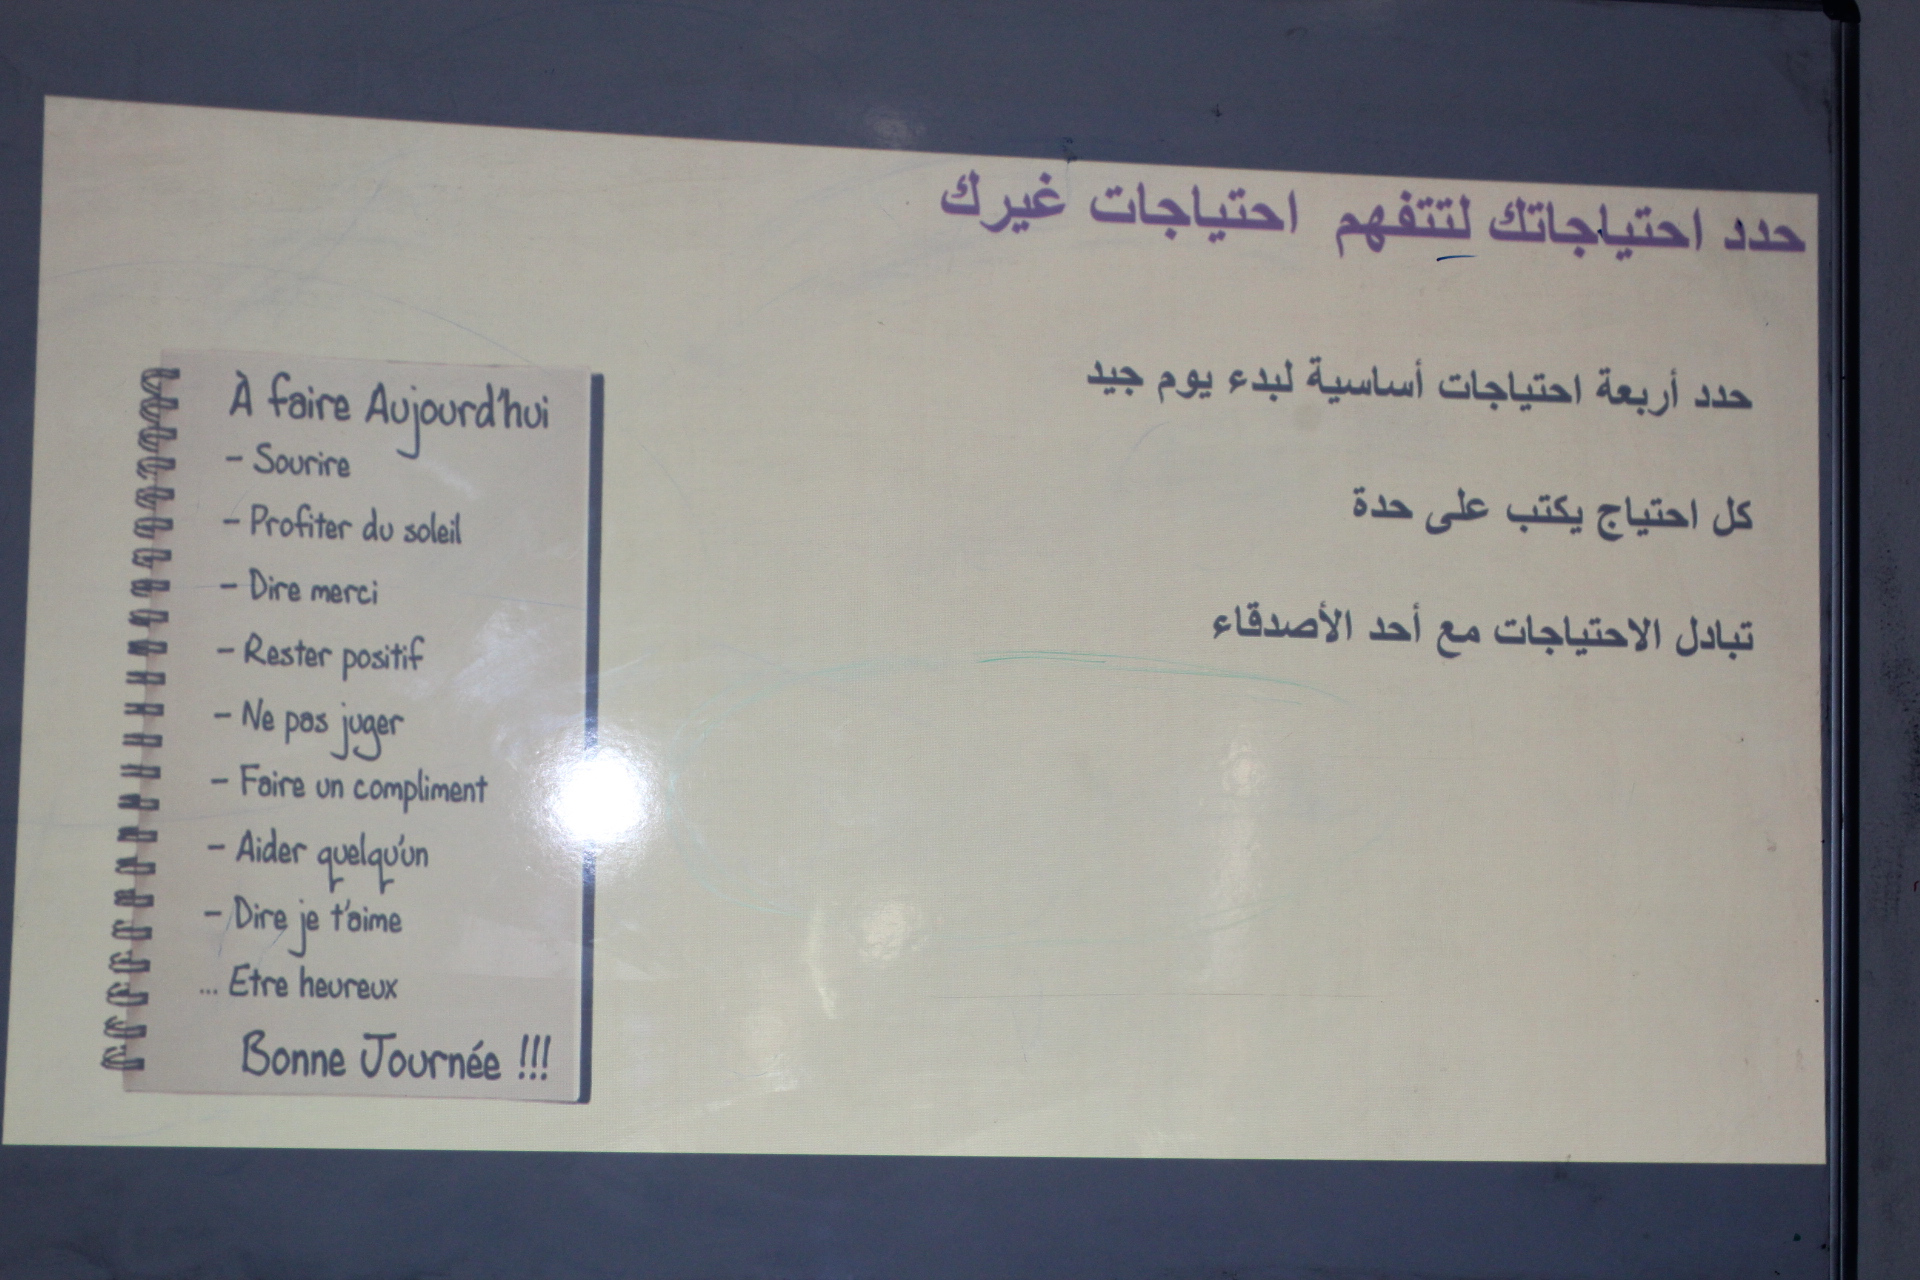 حدد احتياجاتك لتتفهم احتياجات غيرك
حدد أربعة احتياجات أساسية لبدء يوم جيد
كل احتياج يكتب على حدة
تبادل الاحتياجات مع أحد الأصدقاء
À faire Aujourd'hui
- Sourire
- Profiter du soleil
- Dire merci
- Rester positif
- Ne pas juger
- Faire un compliment
- Aider quelqu'un
- Dire je t'aime
... Etre heureux
Bonne Journée !!!